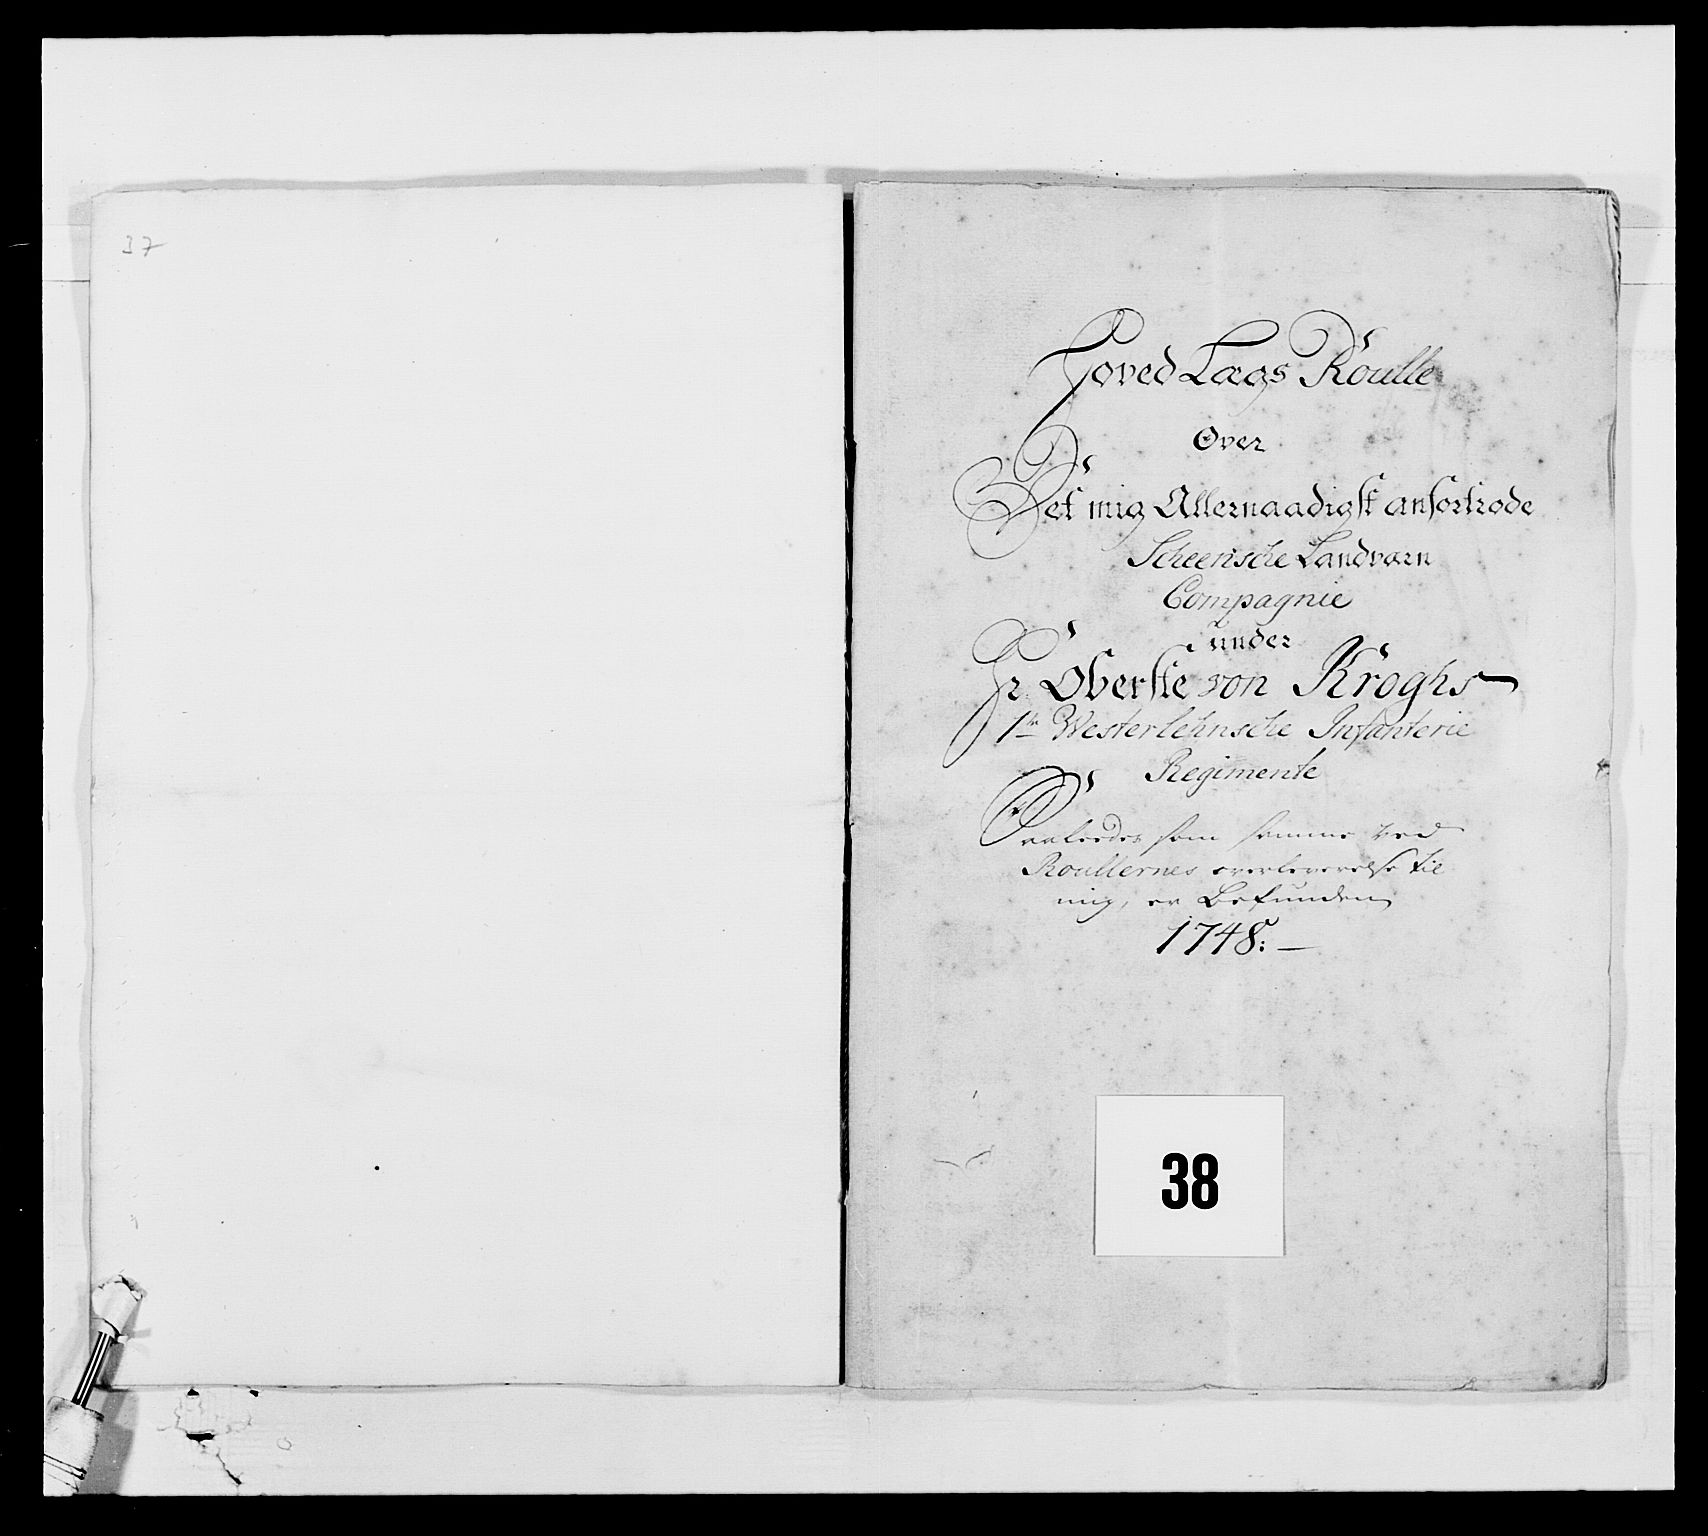 37
Hoved Lægs Roulle
Over
Det mig Allernaadigst anfortrode
Scheensche Landværn
Compagnie
under
Hr Oberste von Kroghs
1te Westerlehnsche Infanterie
Regimente
Saaledes som samme ved
Roullernes overleverelse til
mig, er Befunden
1748: —
38